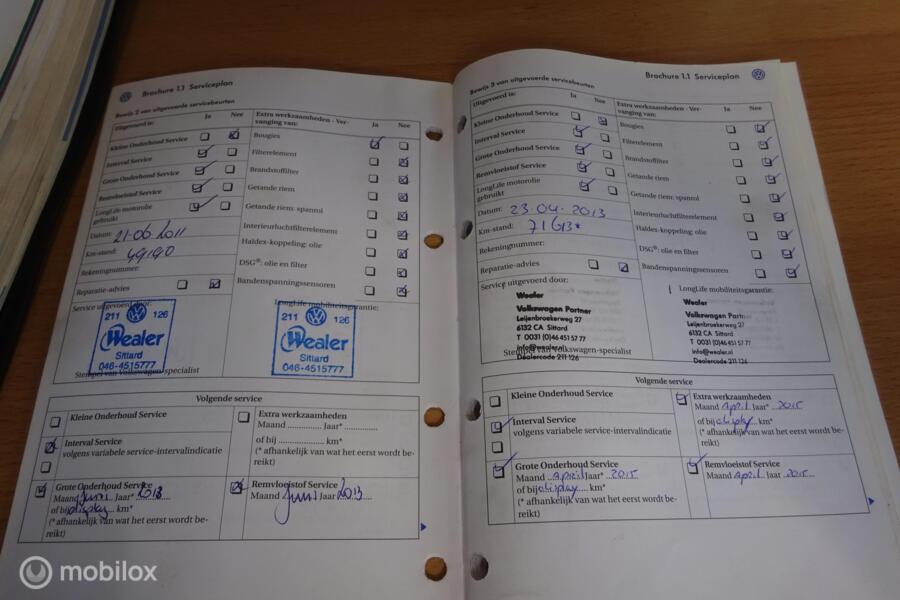 Brochure 1.1 Serviceplan
Bewijs 2 van uitgevoerde servicebeurten
Uitgevoerd is: Ja Nee
Kleine Onderhoud Service
Interval Service
Grote Onderhoud Service
Remvloeistof Service
LongLife motorolie
gebruikt
Datum: 21-06-2011
Km-stand: 49190
Rekeningnummer:
Reparatie-advies
Extra werkzaamheden - Ver-
vanging van: Ja Nee
Bougies
Filterelement
Brandstoffilter
Getande riem
Getande riem: spanrol
Interieurluchtfilterelement
Haldex-koppeling: olie
DSG®: olie en filter
Bandenspanningssensoren
Service uitgevoerd door:
LongLife mobiliteitsgarantie:
211 126
Wealer
Sittard
046-4515777
211 126
Wealer
Sittard
046-4515777
Stempel van Volkswagen-specialist
Volgende service
Kleine Onderhoud Service
Interval Service
volgens variabele service-intervalindicatie
Grote Onderhoud Service
Maand Juni Jaar* 2013
of bij display km*
(* afhankelijk van wat het eerst wordt be-
reikt)
Extra werkzaamheden
Maand .............. Jaar* ..............
of bij .............. km*
(* afhankelijk van wat het eerst wordt be-
reikt)
Remvloeistof Service
Maand Juni Jaar 2013
Brochure 1.1 Serviceplan
Bewijs 3 van uitgevoerde servicebeurten
Uitgevoerd is: Ja Nee
Kleine Onderhoud Service
Interval Service
Grote Onderhoud Service
Remvloeistof Service
LongLife motorolie
gebruikt
Datum: 23-04-2013
Km-stand: 71613*
Rekeningnummer:
Reparatie-advies
Extra werkzaamheden - Ver-
vanging van: Ja Nee
Bougies
Filterelement
Brandstoffilter
Getande riem
Getande riem: spanrol
Interieurluchtfilterelement
Haldex-koppeling: olie
DSG®: olie en filter
Bandenspanningssensoren
Service uitgevoerd door:
Wealer
Volkswagen Partner
Leijenbroekerweg 27
6132 CA Sittard
T 0031 (0)46 451 57 77
info@wealer.nl
Dealercode 211 126
Stempel van Volkswagen-specialist
LongLife mobiliteitsgarantie:
Wealer
Volkswagen Partner
Leijenbroekerweg 27
6132 CA Sittard
T 0031 (0)46 451 57 77
info@wealer.nl
Dealercode 211 126
Volgende service
Kleine Onderhoud Service
Interval Service
volgens variabele service-intervalindicatie
Grote Onderhoud Service
Maand april Jaar* 2015
of bij display km*
(* afhankelijk van wat het eerst wordt be-
reikt)
Extra werkzaamheden
Maand april Jaar* 2015
of bij display km*
(* afhankelijk van wat het eerst wordt be-
reikt)
Remvloeistof Service
Maand april Jaar 2015
mobilox